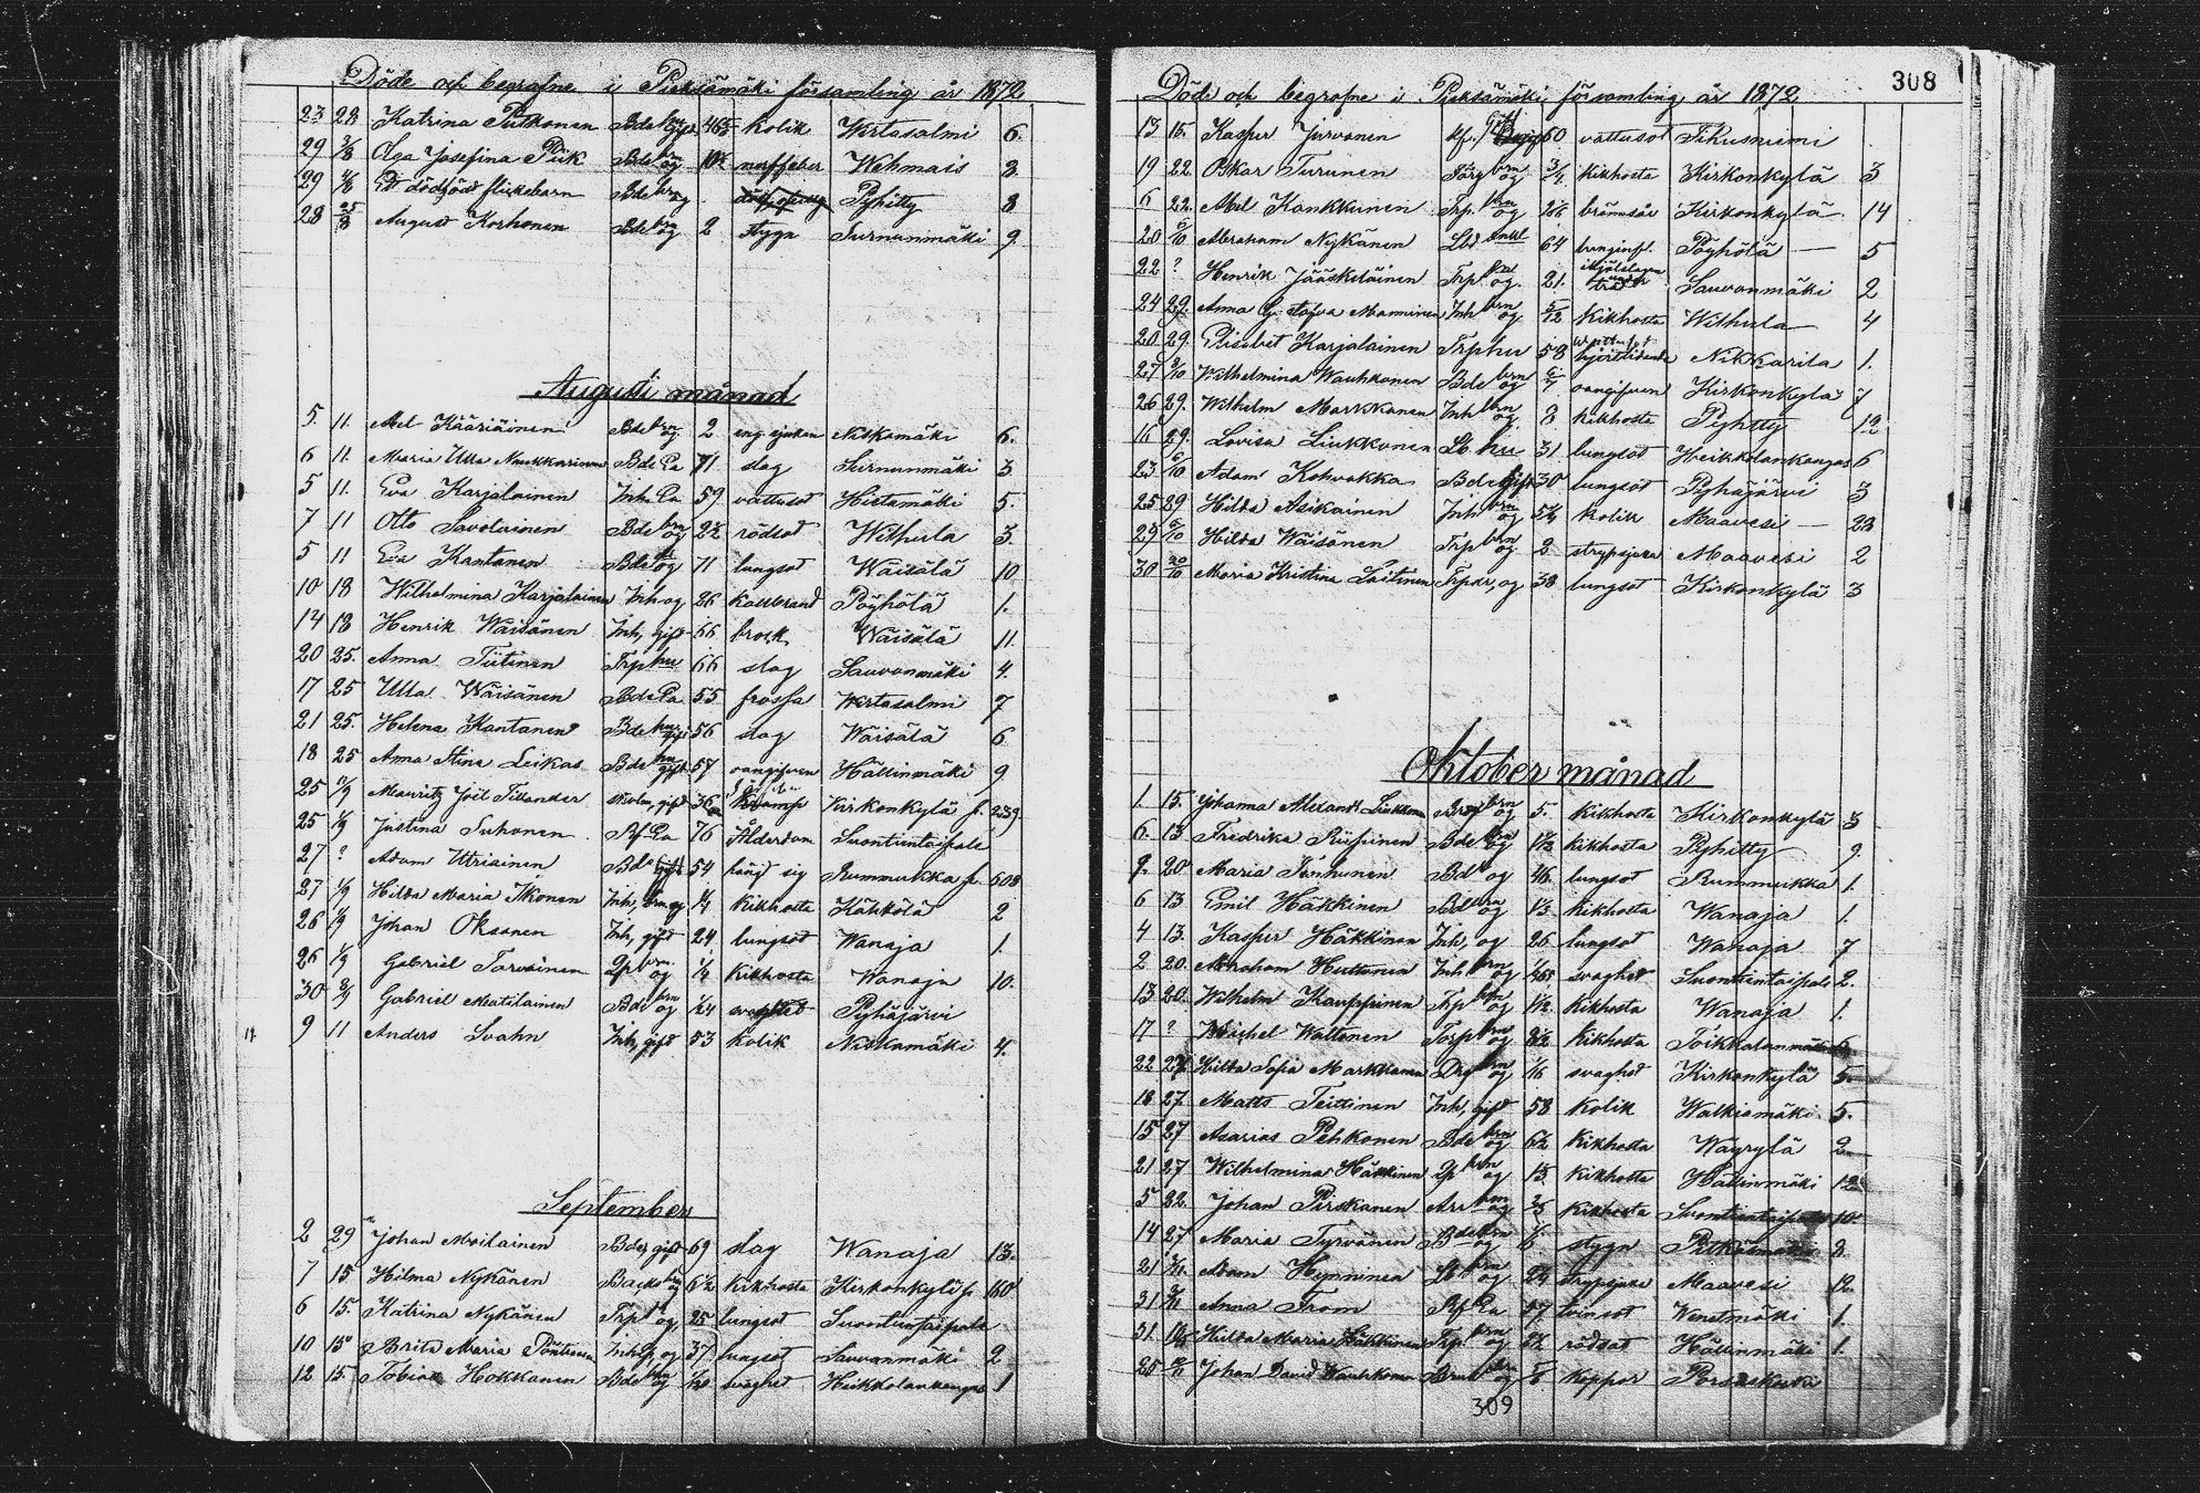 Döde och begrafne i Pieksämäki församling år 1872
23 28 Katrina Putkonen Bde hu gift kolik Wirtasalmi 6.
29 Olga Josefina Pük Bde brn og nerffeber Wehmais 3
29 Ett dödfödt flickebarn Bde brn og Pyhitty 8
28 25/8 August Korhonen Bde brn og 2 stygn Surnunmäki 9
Augusti månad
5. 11. Abel Kääriäinen Bde brn og 2 eng. sjukan Niskamäki 6.
6 11. Maria Ulla Nuukkarinen Bde Ea 71 slag Surnunmäki 3
5 11. Eva Karjalainen Inh. Ea 59 vattusot Hietamäki 5.
7 11 Otto Savolainen Bde brn og rödsot Witherla 3.
5 11 Eva Kantanen Bde og 71 lungsot Waisälä 10
10 18 Wilhelmina Karjalainen Inh og 26 kallbrand Pöyhölä 1.
14 18 Henrik Waisänen Inh, gift 66 brock Waisälä 11.
20 25. Anna Tiitinen Trp hu 66 slag Sauvonmäki 4.
17 25 Ulla Wäisänen Bde Ea 55 frossa Wirtasalmi 7
21 25. Helena Kantanen Bde hu gift 56 slag Wäisälä 6
18 25 Anna Stina Leikas Bde hu gift 57 oangifven Hällinmäki 9
25 1/9 Mauritz Joel Tillander skolm, gift 36 kramp Kirkonkylä p. 239
25 1/9 Justina Suhonen Rf Ea 76 Ålderdom Suontientaipale
27 ? Adam Utriainen Bde gift 54 hängt sig Rummukka p. 608
27 1/9 Hilda Maria Ikonen Inh, brn og 1/4 kikhosta Kähkölä 2
26 1/9 Johan Oksanen Inh, gift 24 lungsot Wanaja 1.
26 1/9 Gabriel Tarvainen brn og 1/4 kikhosta Wanaja 10.
30 8/9 Gabriel Matilainen Bde brn og 1/24 svaghet Pyhäjärvi
9 11 Anders Svahn Inh, gift 53 kolik Niskamäki 4.
September
2 29 Johan Moilainen Bde, gift 69 slag Wanaja 13.
7 15 Hilma Nykänen brn og 6/12 kikhosta Kirkonkylä p. 160
6 15. Katrina Nykänen Trp og 25 lungsot Suontientaipale
10 15 Brita Maria Pöntinen Inh og 37 lungsot Sauvonmäki 2
12 15. Tobias Hokkanen Bde brn og svaghet Heikkolankangas 1
308
Döde och begrafne i Pieksämäki församling år 1872
13 15. Kasper Jurvanen gift 60 vattusot Tikusniemi
19 22. Oskar Turunen brn og 3/4 kikhosta Kirkonkylä 3
6 22. Abel Kankkunen Trp. brn og brännsår Kirkonkylä 14
20 6/10 Abraham Nykänen enkl 64 lunginfl. Pöyhölä 5
22 ? Henrik Jääskeläinen Trp og. 21. ihjälslagen träd Sauvonmäki 2
24 29. Anna Gustafva Manninen Inh brn og 5/12 kikhosta Witherla 4
20 29. Elisabet Karjalainen Trp hu 58 Nikkarila 1.
27 6/10 Wilhelmina Wauhkonen Bde brn og oangifven Kirkonkylä 7
26 29. Wilhelm Markkanen Inh brn og kikhosta Pyhitty 12
16 29. Lovisa Liukkonen hu 31 lungsot Heikkolankangas 6
23 6/10 Adam Kohvakka Bde gift 30 lungsot Pyhäjärvi 3
25 29 Hilda Asikainen Inh brn og kolik Maavesi 23
29 6/10 Hilda Wäisänen Trp brn og 2 strypsjuka Maavesi 2
30 20/10 Maria Kristina Laitinen og 38 lungsot Kirkonkylä 3
Oktober månad
1. 15. Johanna Alexandr. Liukkonen brn og 5. kikhosta Kirkonkylä 3
6. 13 Fredrika Riipinen Bde brn og kikhosta Pyhitty 9.
9. 20 Maria Tenhunen Bde og 46 lungsot Rummukka 1.
6 13 Emil Häkkinen Bde brn og kikhosta Wanaja 1.
4 13. Kasper Häkkinen Inh, og 26 lungsot Wanaja 7
2 20. Abraham Huttunen Inh brn og svaghet Suontientaipale 2.
13 20. Wilhelm Kauppinen Trp brn og kikhosta Wanaja 1.
17 ? Michel Wattonen Torp brn og kikhosta 6
22 27 Hilda Sofia Markkanen brn og svaghet Kirkonkylä 5.
18 27 Matts Teittinen Inh, gift 58 kolik Walkiamäki 5.
15 27 Asarias Pehkonen Bde brn og kikhosta Wäyrylä 2
21 27 Wilhelmina Häkkinen brn og kikhosta Hällinmäki 12
5 22. Johan Pirskanen brn og kikhosta Suontientaipale 10.
14 27 Maria Tyrvänen Bde brn og stygn
21 Adam Hynninen brn og strypsjuka Maavesi 12.
31 Anna From Rf Ea Wenetmäki 1.
31. Hilda Maria Häkkinen Trp brn og rödsot Hällinmäki 1.
25 Johan David Wauhkonen brn og koppor Porsaskoski
309